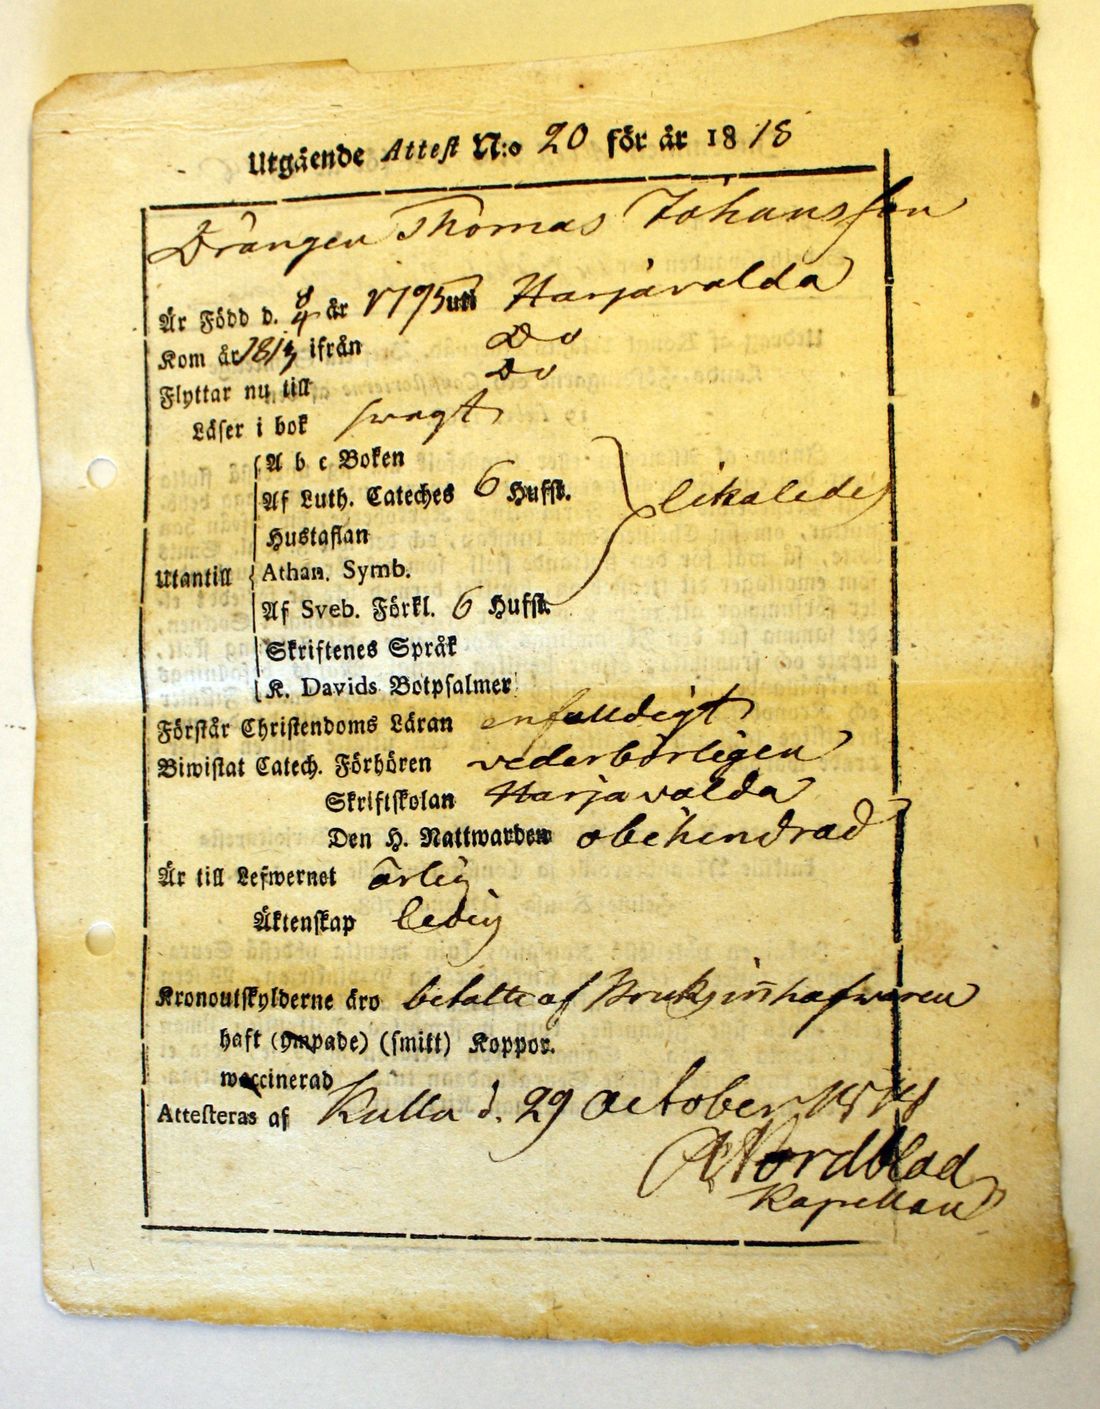 Utgående Attest N:o 20 för år 1818
Drängen Thomas Johansson
Är Född d. 8/4 år 1795 uti Harjavalda
Kom år 181 ifrån Do
Flyttar nu till Do
Läser i bok swagt
A b c Boken
Af Luth. Cateches 6 Hufst. likaledes
Hustaflan
Utantill Athan. Symb.
Af Sveb. Förkl. 6 Hufst.
Skriftenes Språk
K. Davids Botpsalmer
Förstår Christendoms Läran enfalldigt
Biwistat Catech. Förhören vederbörligen
Skriftskolan Harjavalda
Den H. Nattwarden obehindrad
Är till Lefwernet ärlig
Äktenskap ledig
Kronoutskylderne äro betalte af Bruksinnhafwaren
haft (ympade) (smitt) Koppor.
waccinerad
Attesteras af Kulla d. 29 October 1818
Nordblad
Kapellan